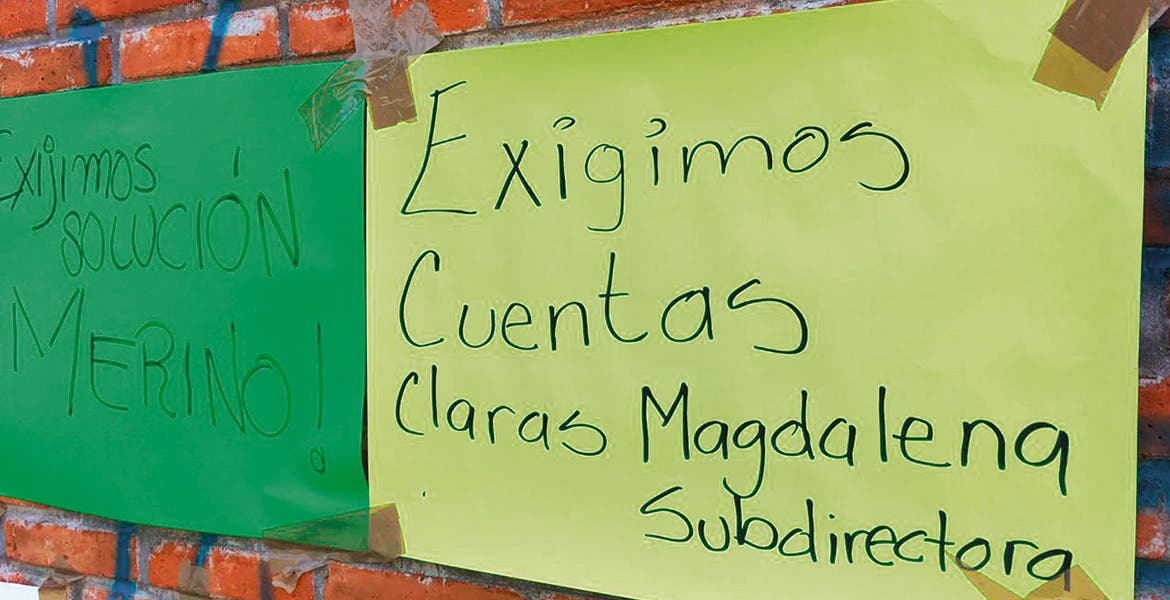 Exijimos
SOLUCIÓN
MERINO!
Exigimos
Cuentas
Claras Magdalena
Subdirectora